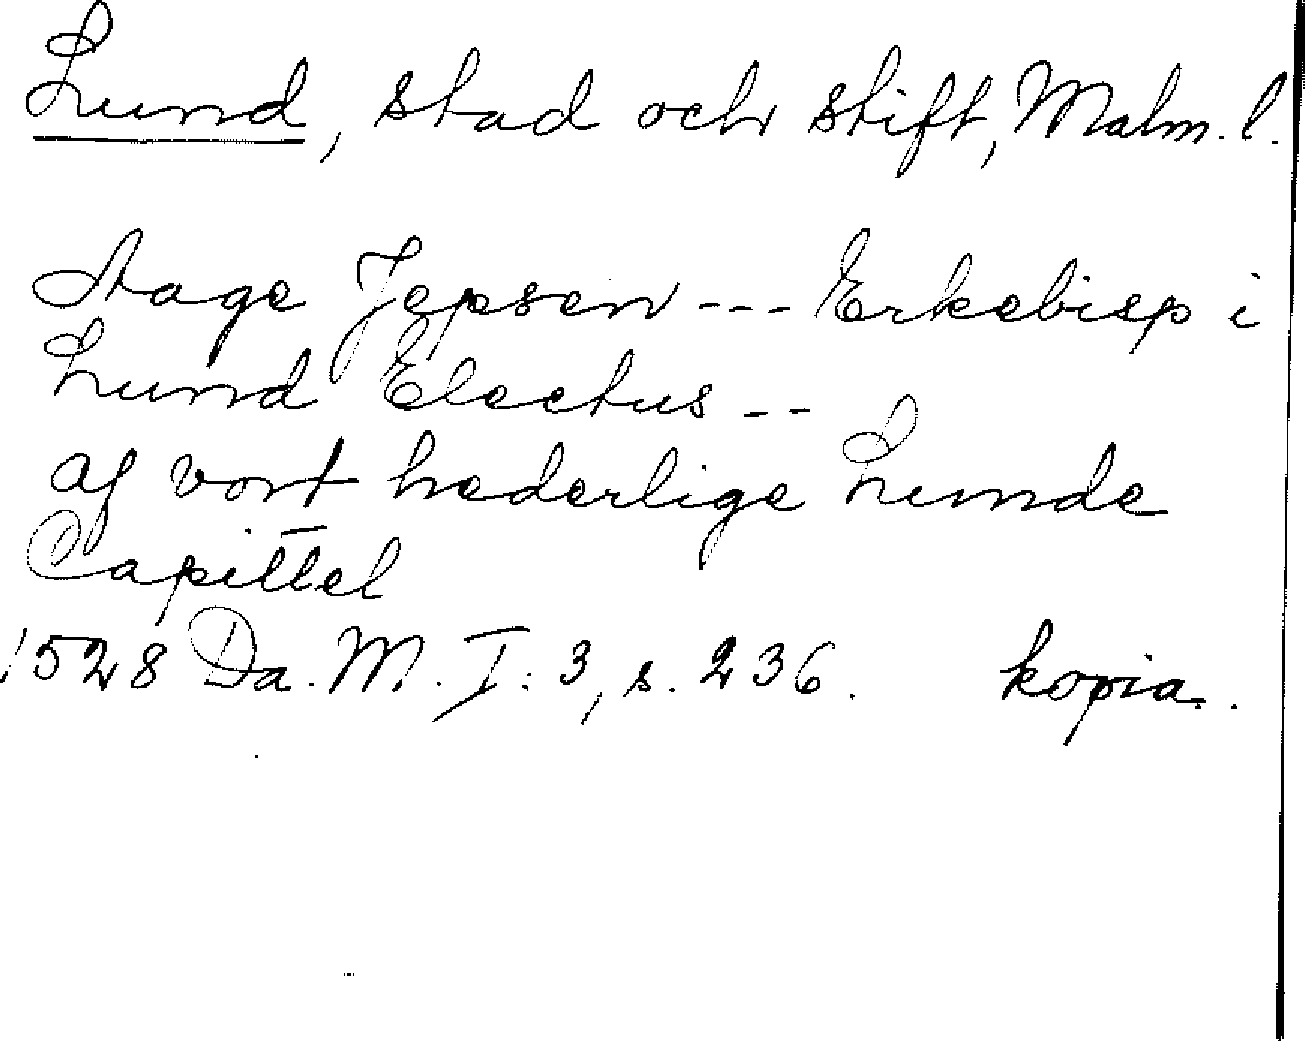 Lund, stad och stift, Malm. l.
Aage Jepsen --- Erkebisp i
Lund Electus --
af vort hæderlige Lunde
Capittel
1528 Da. M. I: 3, s. 236. kopia.